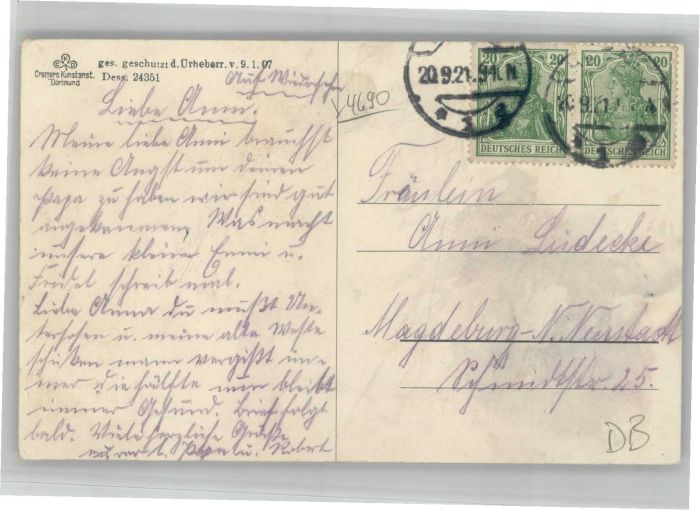 Cremers Kunstanst.
Dortmund
ges. geschützt d. Urheberr. v. 9. 1. 07
Dess. 24351
Auf Wiedersehn
Liebe Anni.
Meine liebe Anni brauchst
keine Angst um deinen
Papa zu haben wir sind gut
angekommen, Was macht
unsere kleine Emmi u.
Friedel schreib mal.
Liebe Anna du mußt Un-
terhosen u. meine alte Weste
schicken mann vergißt im-
mer die hälfte nun bleibt
immer Gesund. Brief folgt
bald. Viele herzliche Grüße
Papa u. Robert
V4690
20.9.21. 9-1. N.
20 20
DEUTSCHES REICH
20 20
DEUTSCHES REICH
Fräulein
Anni Lüdecke
Magdeburg-N. Neustadt
Schmidtstr 25.
DB